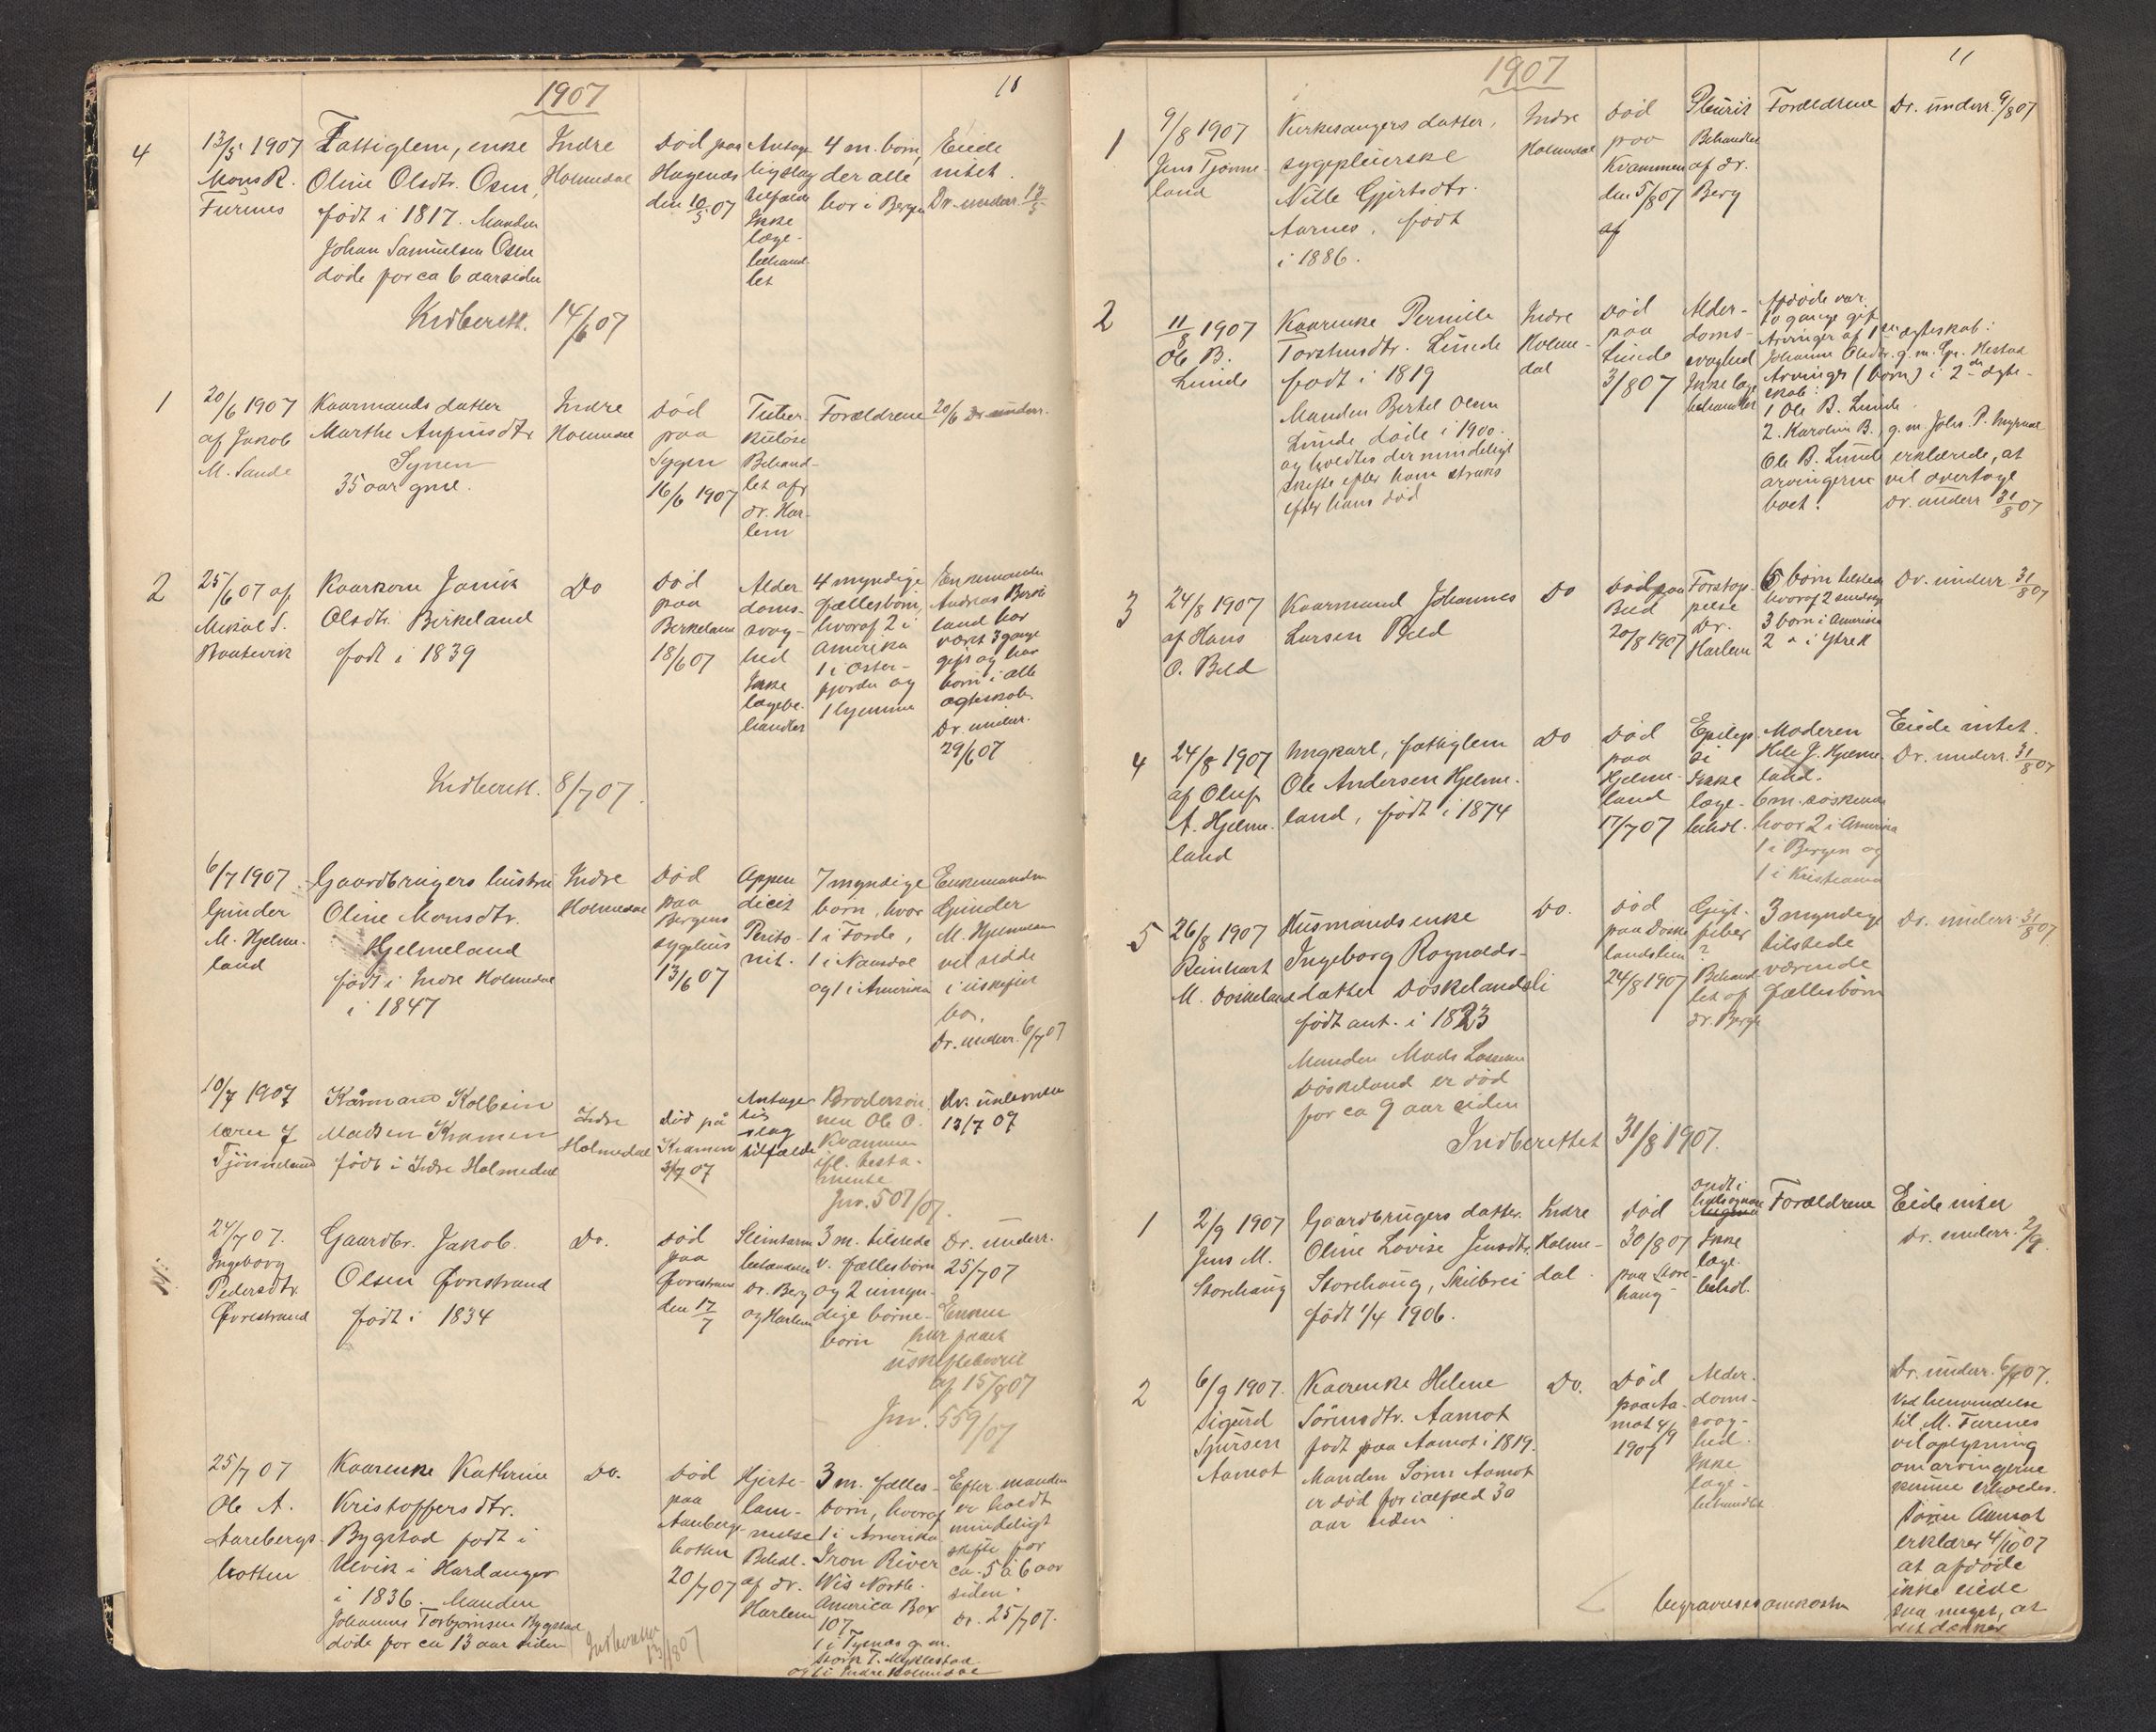 1907
11
4
13/5 1907
Mons R.
Furenes
Fattiglem, enke
Oline Olsdtr. Osen,
født i 1817. Manden
Johan Samuelsen Osen
døde for ca 6 aar siden
Indre
Holmedal
Død paa
Hagenæs
den 10/5 07
Antage
ligslag
tilfælde
Ikke
læge-
behand-
let
4 m. born,
der alle
bor i Bergen
Eiede
intet.
Dr. underr. 13/5
Indberett. 14/6 07
1
20/6 1907
af Jakob
M. Sande
Kaarmands datter
Marthe Anfinsdtr
35 aar gml.
Indre
Holmedal
Død
paa
16/6 1907
Tuber-
kuløse
Behand-
let af
dr. Har-
lem
Forældrene
20/6 Dr underr.
2
25/6 07 af
Mikal S.
Kaarkone
Olsdtr. Birkeland
født i 1839
Do
Død
paa
Birkeland
18/6 07
Alder
doms-
svag-
hed
Ikke
lægebe-
handlet
4 myndige
fællesbørn,
hvoraf 2 i
Amerika
1 i Oster-
fjorden og
1 hjemme
Enkemanden
Andreas Birke
land har
været 3 gange
gift og har
børn i alle
ægteskab.
Dr. underr.
29/6 07
Indberett. 8/7 07.
6/7 1907
Gunder
M. Hjelme-
land
Gaardbrugers hustru
Oline Monsdtr.
Hjelmeland
født i Indre Holmedal
i 1847
Indre
Holmedal
Død
paa
Bergens
sygehus
13/6 07
Appen
dicit
Perito-
nit.
7 myndige
børn, hvor
1 i Førde,
1 i Naustdal
og 1 i Amerika
Enkemanden
Gunder
M. Hjelmeland
vil sidde
i uskiftet
bo.
Dr. underr. 6/7 07
10/7 1907
Tjönneland
Kårmand Kolbein
Madsen Kramen
født i Indre Holmedal
Indre
Holmedal
død på
Kramen
5/7 07
Antage
lig
slag
tilfælde
Brodersøn-
nen Ole O.
Kvammen
ifl. testa-
mente
Jnr. 507/07.
13/7 07
24/7 07.
Ingeborg
Pedersdtr.
Øvrestrand
Gaardbr. Jakob
Olsen Øvrestrand
født i 1834
Do.
Død
paa
Øvrestrand
den 17/7
Dr. Berg
og Harlem
3 m. tilstede
v. fællesbørn
og 2 umyn-
dige børne-
børn
Dr. underr.
25/7 07
Enken
har faaet
uskiftebevil
af 15/8 07
Jnr. 559/07
25/7 07
Ole A.
Aarebergs-
botten
Kaarenke Kathrine
Kristoffersdtr.
Bygstad født i
Ulvik i Hardanger
i 1836. Manden
Johannes Torbjørnsen Bygstad
døde for ca 13 aar siden
Do.
Død
paa
Aareberg-
botten
20/7 07
Hjerte-
lam-
melse
Behdl.
af dr.
Harlem
3 m. fælles-
børn, hvoraf
1 i Amerika
Iron River
Wis North.
America Box
107
og 1 i Indre Holmedal
Efter manden
er holdt
mindeligt
skifte for
ca. 5 à 6 aar
siden.
Dr. 25/7 07.
Indberettet
13/8 07
1907
11
1
9/8 1907
Jens Tjønne-
land
Kirkesangers datter,
sygepleierske
Nille Gjertsdtr.
Aarnes, født
i 1886.
Indre
Holmedal
Død
paa
Kvammen
den 5/8 07
af
Pleurit
Behandlet
af dr.
Berg
Forældrene
Dr. underr. 9/8 07
2
11/8 1907
Ole B.
Lunde
Kaarenke Pernille
Lunde
født i 1819
Manden Bertel Olsen
Lunde døde i 1900.
og holdtes der mindeligt
skifte efter ham straks
efter hans død
Indre
Holme-
dal
Død
paa
Lunde
3/8 07
Alder-
doms-
svaghed
Ikke læge
behandlet
Afdøde var
to gange gift
Arvinger af 1ste ægteskab:
Johanne Olsdtr. g. m. Hestad
Arvinger (børn) i 2det ægte-
skab:
1 Ole B. Lunde
2. Karoline B., g. m. Johs. P. Myrmel
Ole B. Lunde erklærede, at
arvingerne vil overtage
boet.
Dr. underr 31/8 07
3
24/8 1907
af Hans
O. Beld
Kaarmand Johannes
Larsen Beld
Do
Død paa
Beld
20/8 1907
Forstop-
pelse
Dr.
Harlem
5 børn tilstede
hvoraf 2
3 børn i Amerika
2 " i Ytre H
Dr. underr. 31/8 07
4
24/8 1907
af Oluf
A. Hjelme-
land
Ungkarl, fattiglem
Ole Andersen Hjelme-
land, født i 1874
Do
Død
paa
Hjelme-
land
17/7 07
Epilep-
si
Ikke
læge-
behdl.
Moderen
Hjelme-
land.
6 m. søskende
hvor 2 i Amerika
1 i Bergen og
1 i Kristiania
Eiede intet.
Dr. underr. 31/8 07
5
26/8 1907
Reinhart
M. Döskeland
Husmandsenke
Ingeborg Rognalds-
datter Döskelandsli
født ant. i 1823
Manden Mads Lassesen
Döskeland er død
for ca 9 aar siden
Do.
Død
paa Döske
landslien
24/8 1907
Gigt-
feber
?
Behand-
let af
dr. Berg
3 myndige
tilstede
værende
fællesbørn
Dr. underr. 31/8 07.
Indberettet 31/8 1907.
1
2/9 1907
Jens M.
Storehaug
Gaardbrugers datter.
Oline Lovise Jensdtr.
Storehaug, Skilbrei
født 1/4 1906.
Indre
Holme-
dal
Død
30/8 07
paa Store-
haug
Ikke
læge-
behdl.
Forældrene
Eiede intet
Dr. underr. 2/9.
2
6/9 1907.
Sigurd
Sjursen
Aamot
Kaarenke Helene
Sörensdtr. Aamot
født paa Aamot i 1819.
Manden Sören Aamot
er død for ialfald 30
aar siden
Do.
Død
paa Aa-
mot 4/9
1907
Alder-
doms-
svag-
hed.
Ikke
læge-
behandlet
Dr. underr. 6/9 07.
Ved henvendelse
til M. Furenes
vil oplysning
om arvingerne
kunne erholdes.
Sören Aamot
erklærer 4/10 07
at afdøde
ikke eiede
saa meget, at
det dækker
begravelsesomkostn